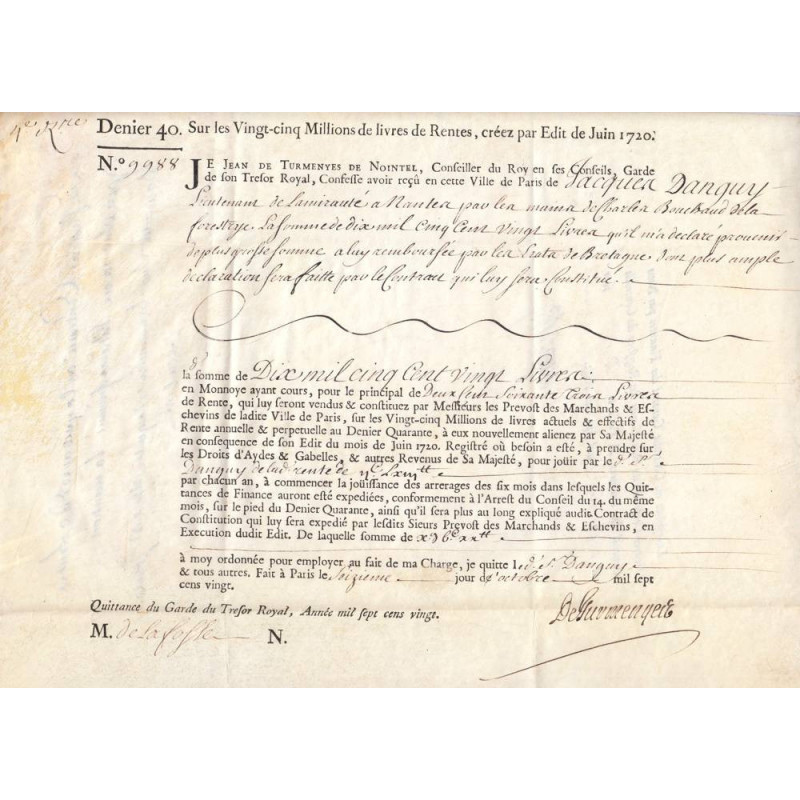 Denier 40. Sur les Vingt-cinq Millions de livres de Rentes, créez par Edit de Juin 1720.
N.º 9988
JE JEAN DE TURMENYES DE NOINTEL, Conseiller du Roy en ses Conseils, Garde
de son Tresor Royal, Confesse avoir reçû en cette Ville de Paris de Jacques Danguy
Lieutenant de Lamirauté a Nantes par les mains de Charles Bouchaud de la
forestrye La somme de dix mil cinq Cent vingt Livres qu'il m'a declaré prouenir
de plus grosse somme a luy remboursée par les Etats de Bretagne dont plus ample
declaration sera faitte par le Contract qui luy sera Constitué.
la somme de Dix mil cinq Cent vingt Livres
en Monnoye ayant cours, pour le principal de Deux Cens Soixante Trois Livres
de Rente, qui luy seront vendus & constituez par Messieurs les Prevost des Marchands & Es-
chevins de ladite Ville de Paris, sur les Vingt-cinq Millions de livres actuels & effectifs de
Rente annuelle & perpetuelle au Denier Quarante, à eux nouvellement alienez par Sa Majesté
en consequence de son Edit du mois de Juin 1720. Registré où besoin a esté, à prendre sur
les Droits d'Aydes & Gabelles, & autres Revenus de Sa Majesté, pour jouir par le d. Sr.
Danguy de lad. rente de ijc Lxiijtt
par chacun an, à commencer la joüissance des arrerages des six mois dans lesquels les Quit-
tances de Finance auront esté expediées, conformement à l'Arrest du Conseil du 14. du même
mois, sur le pied du Denier Quarante, ainsi qu'il sera plus au long expliqué audit Contract de
Constitution qui luy sera expedié par lesdits Sieurs Prevost des Marchands & Eschevins, en
Execution dudit Edit. De laquelle somme de
à moy ordonnée pour employer au fait de ma Charge, je quitte l d. Sr. Danguy
& tous autres. Fait à Paris le Seizieme jour d'octobre mil sept
cens vingt.
Quittance du Garde du Tresor Royal, Année mil sept cens vingt.
De Turmenyes
M. de la fosse N.